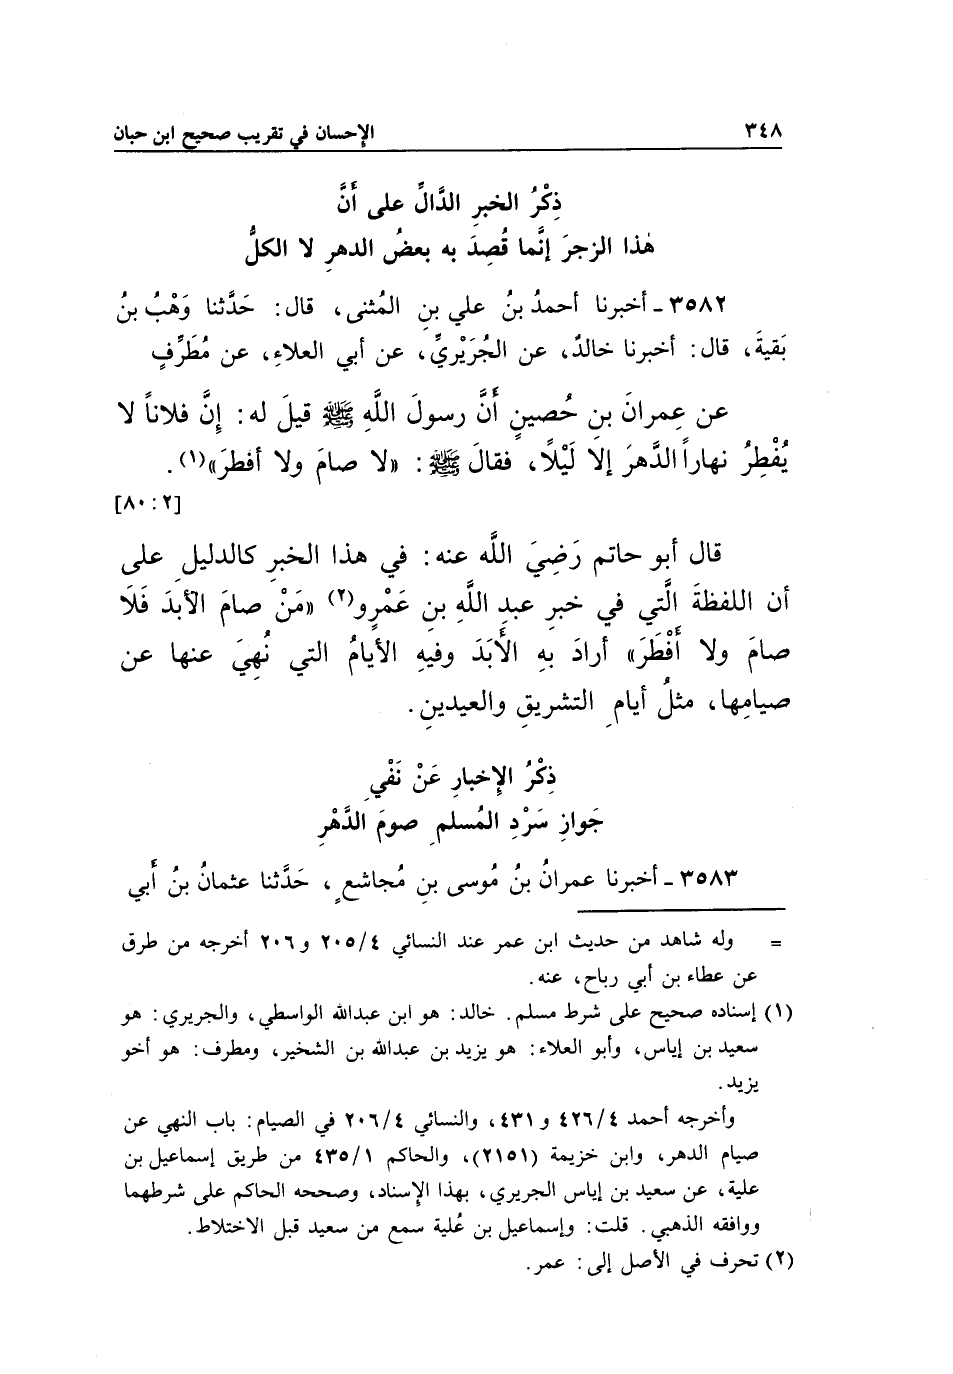 ٣٤٨ الإحسان في تقريب صحيح ابن حبان
ذِكْرُ الخبرِ الدَّالِّ على أَنَّ
هٰذا الزجرَ إنَّما قُصِدَ به بعضُ الدهرِ لا الكلُّ
٣٥٨٢ ـ أخبرنا أحمدُ بنُ علي بنِ المُثنى، قال: حَدَّثنا وَهْبُ بنُ
بَقيةَ، قال: أخبرنا خالدٌ، عن الجُرَيْريِّ، عن أبي العلاءِ، عن مُطَرِّفٍ
عن عِمرانَ بنِ حُصينٍ أَنَّ رسولَ اللَّهِ ﷺ قيلَ له: إِنَّ فلاناً لا
يُفْطِرُ نهاراً الدَّهرَ إلا لَيْلًا، فقالَ ﷺ: «لا صامَ ولا أفطرَ»(١).
[٢: ٨٠]
قال أبو حاتم رَضِيَ اللَّه عنه: في هذا الخبرِ كالدليلِ على
أن اللفظةَ الَّتي في خبرِ عبدِ اللَّهِ بنِ عَمْرٍو(٢) «مَنْ صامَ الأبدَ فَلَا
صامَ ولا أَفْطَرَ» أرادَ بهِ الأَبَدَ وفيهِ الأيامُ التي نُهِيَ عنها عن
صيامِها، مثلُ أيامِ التشريقِ والعيدينِ.
ذِكْرُ الإِخبارِ عَنْ نَفْيِ
جَوازِ سَرْدِ المُسلمِ صومَ الدَّهْرِ
٣٥٨٣ ـ أخبرنا عمرانُ بنُ مُوسى بنِ مُجاشعٍ، حَدَّثنا عثمانُ بنُ أَبي
= وله شاهد من حديث ابن عمر عند النسائي ٢٠٥/٤ و ٢٠٦ أخرجه من طرق
عن عطاء بن أبي رباح، عنه.
(١) إسناده صحيح على شرط مسلم. خالد: هو ابن عبدالله الواسطي، والجريري: هو
سعيد بن إياس، وأبو العلاء: هو يزيد بن عبدالله بن الشخير، ومطرف: هو أخو
يزيد.
وأخرجه أحمد ٤٢٦/٤ و ٤٣١، والنسائي ٢٠٦/٤ في الصيام: باب النهي عن
صيام الدهر، وابن خزيمة (٢١٥١)، والحاكم ٤٣٥/١ من طريق إسماعيل بن
علية، عن سعيد بن إياس الجريري، بهذا الإِسناد، وصححه الحاكم على شرطهما
ووافقه الذهبي. قلت: وإسماعيل بن عُلية سمع من سعيد قبل الاختلاط.
(٢) تحرف في الأصل إلى: عمر.